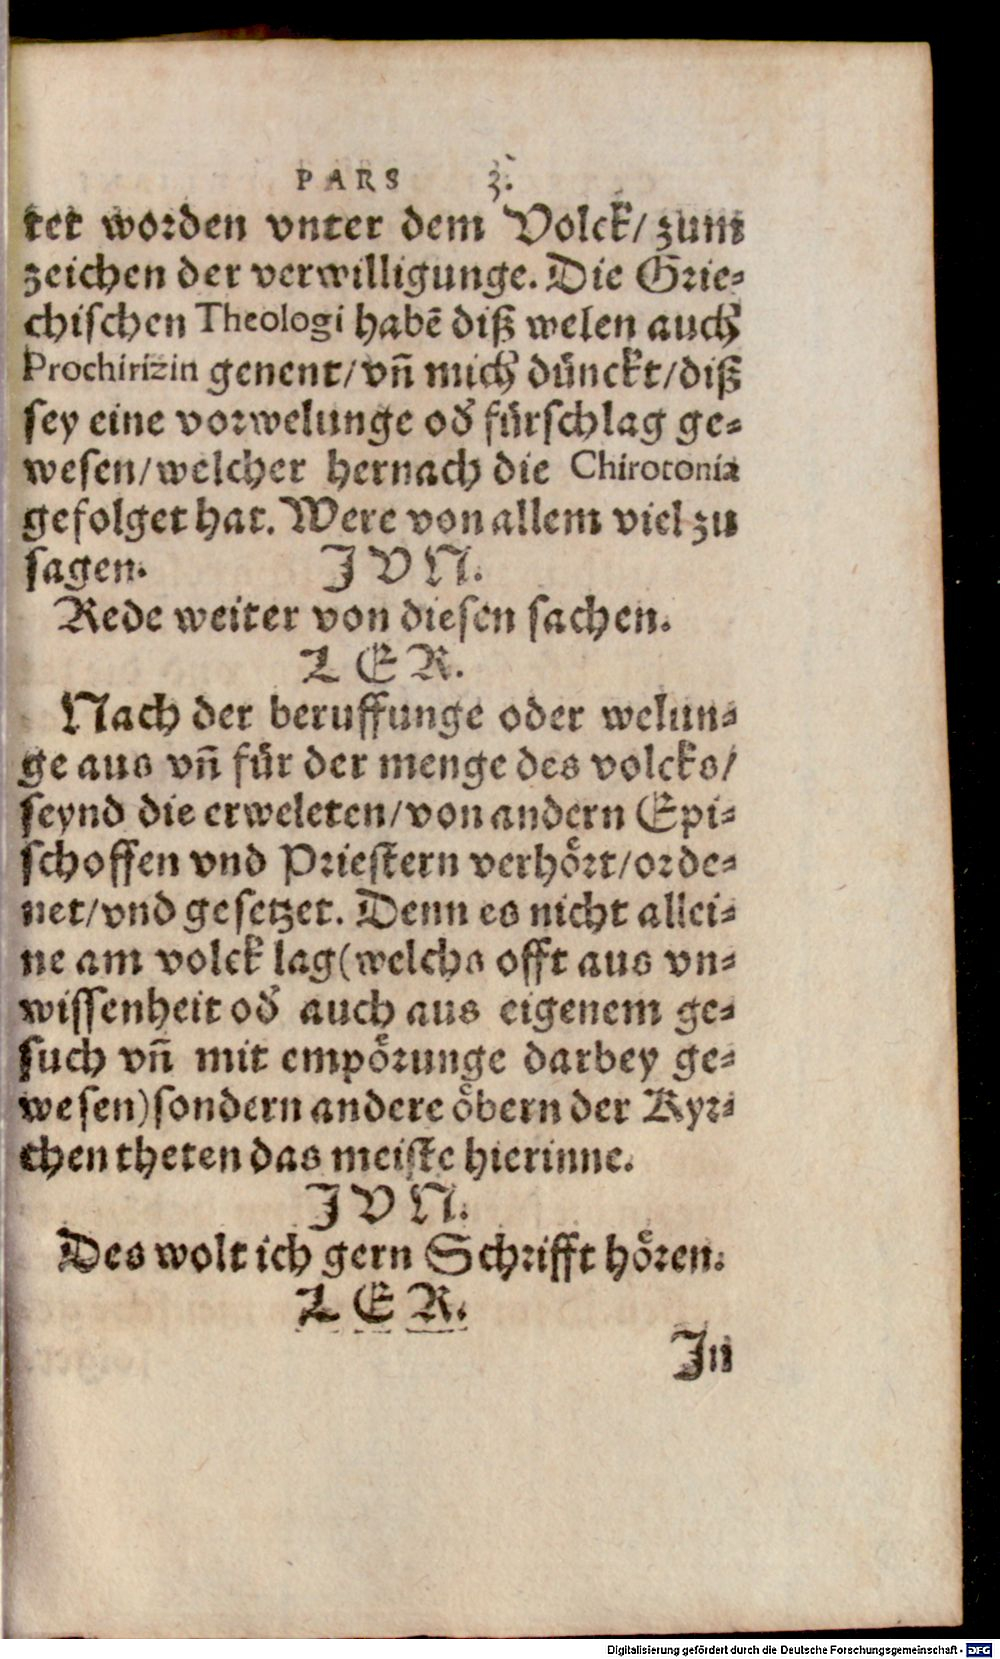 PARS 3.
tet worden vnter dem Volck/ zum
zeichen der verwilligunge. Die Grie-
chischen Theologi habē diß welen auch
Prochirizin genent/ vñ mich dünckt/ diß
sey eine vorwelunge od̕ fürschlag ge-
wesen/ welcher hernach die Chirotonia
gefolget hat. Were von allem viel zu
sagen. JVN.
Rede weiter von diesen sachen.
LER.
Nach der beruffunge oder welun-
ge aus vñ für der menge des volcks/
seynd die erweleten/ von andern Epi-
schoffen vnd Priestern verhört/ orde-
net/ vnd gesetzet. Denn es nicht allei-
ne am volck lag (welchs offt aus vn-
wissenheit od̕ auch aus eigenem ge-
such vñ mit empörunge darbey ge-
wesen) sondern andere öbern der Kyr-
chen theten das meiste hierinne.
JVN.
Des wolt ich gern Schrifft hören.
LER.
Jn
Digitalisierung gefördert durch die Deutsche Forschungsgemeinschaft - DFG